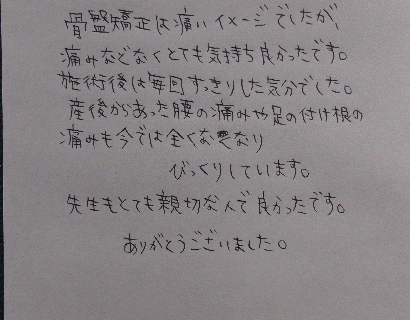 骨盤矯正は痛いイメージでしたが、
痛みなどなくとても気持ち良かったです。
施術後は毎回すっきりした気分でした。
産後からあった腰の痛みや足の付け根の
痛みも今では全くなくなり
びっくりしています。
先生もとても親切なんで良かったです。
ありがとうございました。